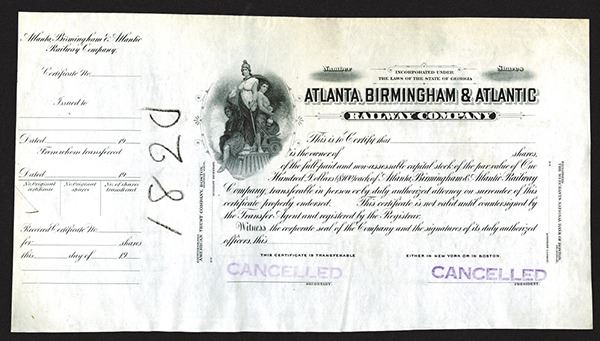 Atlanta, Birmingham & Atlantic
Railway Company.
Certificate No.
Issued to
Dated 19
From whom transferred
Dated 19
No. Original No. Original No. of shares
Received Certificate No.
for shares
this day of 19
1820
Number Shares
INCORPORATED UNDER
THE LAWS OF THE STATE OF GEORGIA
ATLANTA, BIRMINGHAM & ATLANTIC
RAILWAY COMPANY
This is to Certify that
is the owner of shares,
of the full-paid and non-assessable capital stock of the par value of One
Hundred Dollars ($100) each of Atlanta, Birmingham & Atlantic Railway
Company, transferable in person or by duly authorized attorney on surrender of this
certificate properly endorsed. This certificate is not valid until countersigned by
the Transfer Agent and registered by the Registrar.
Witness, the corporate seal of the Company and the signatures of its duly authorized
officers, this
THIS CERTIFICATE IS TRANSFERABLE EITHER IN NEW YORK OR IN BOSTON.
CANCELLED CANCELLED
SECRETARY. PRESIDENT.
AMERICAN TRUST COMPANY, BOSTON,